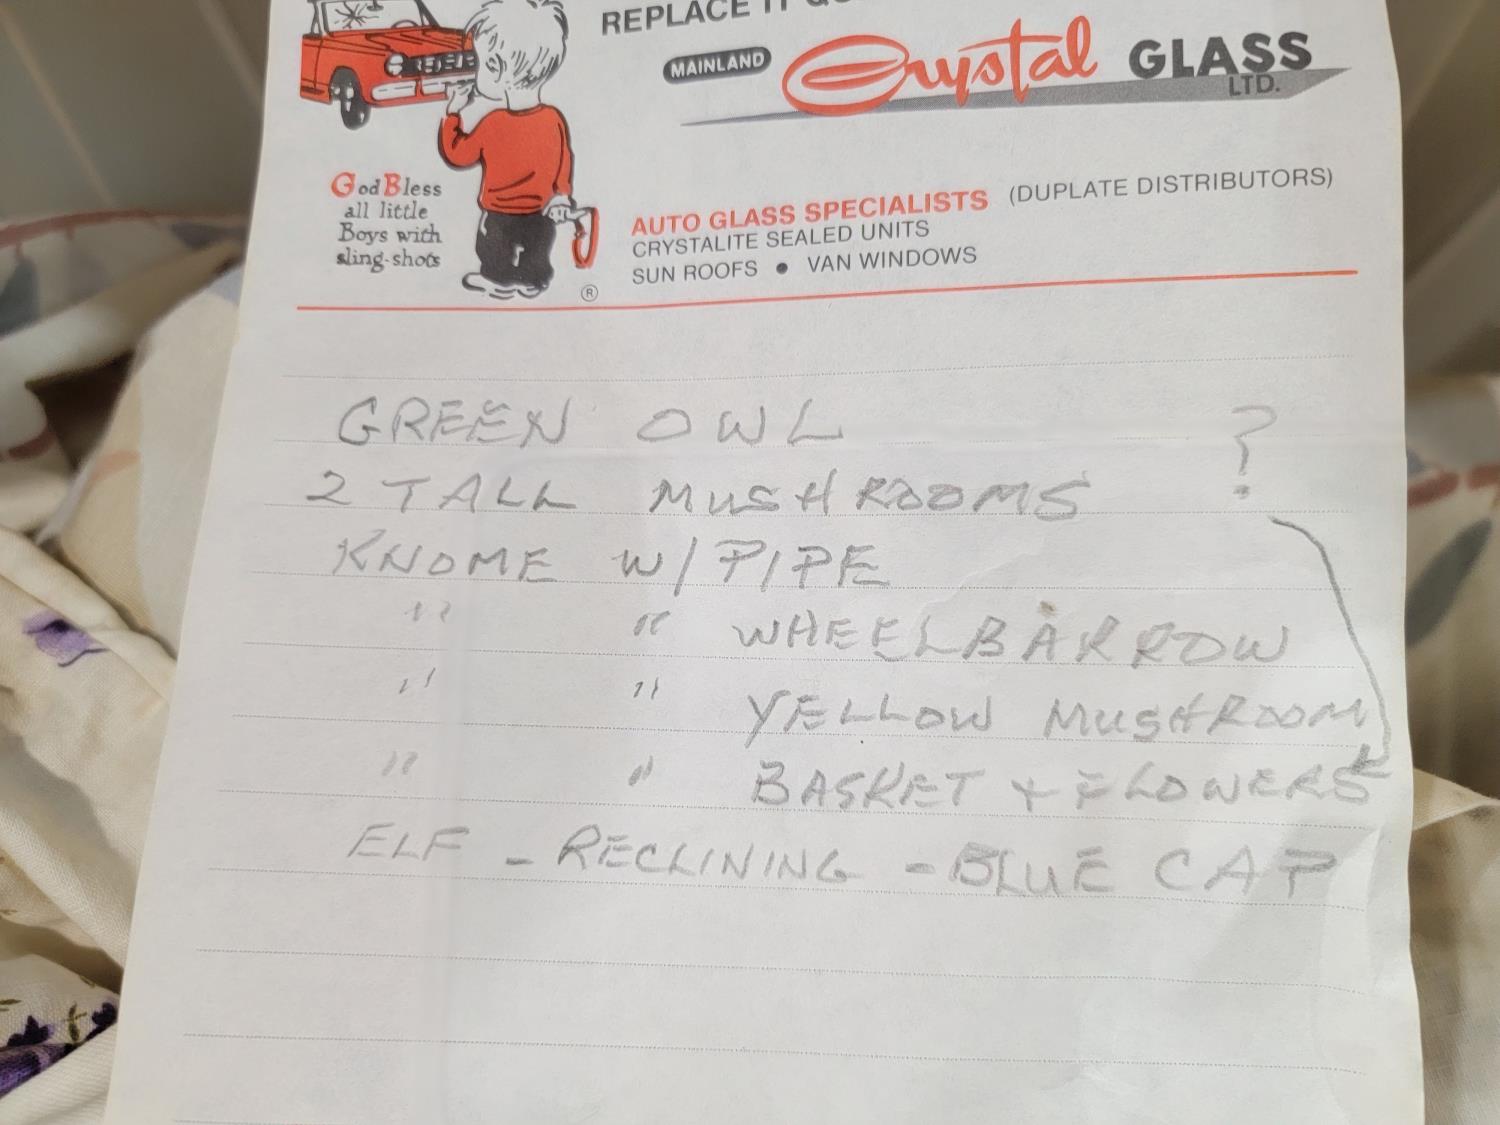 REPLACE IT
MAINLAND Crystal GLASS LTD.
God Bless
all little
Boys with
sling-shots
®
AUTO GLASS SPECIALISTS (DUPLATE DISTRIBUTORS)
CRYSTALITE SEALED UNITS
SUN ROOFS • VAN WINDOWS
GREEN OWL ?
2 TALL MUSHROOMS
KNOME W/ PIPE
" " WHEELBARROW
" " YELLOW MUSHROOM
" " BASKET + FLOWERS
ELF - RECLINING - BLUE CAP